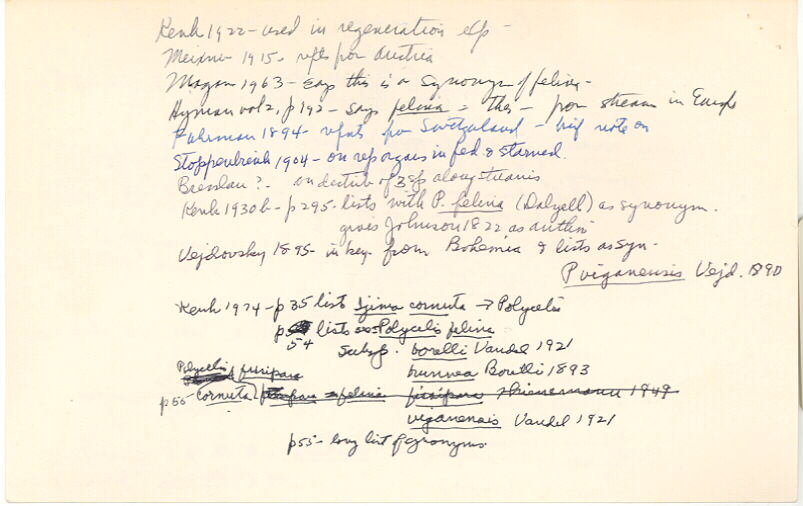 Kenk 1922 - used in regeneration exp -
Meixner 1915 - rpts from Austria
1963 - says this is a synonym of felina -
Hyman vol 2, p 192 - says felina = this - from stream in Europe
Fuhrman 1894 - rpts from Switzerland - brief note on
Stoppenbrink 1904 - on rep organs in fed & starved.
Bresslau ? - on distrib of 3 sp along streams
Kenk 1930 b - p 295 - lists with P. felina (Dalyell) as synonym.
gives Johnson 1822 as author
Vejdovsky 1895 - in key - from Bohemia & lists as syn -
P viganensis Vejd. 1890
Kenk 1974 - p 35 list Ijima cornuta → Polycelis
p 54 lists as Polycelis felina
subsp. borelli Vandel 1921
brunnea Borelli 1893
Polycelis fissipara
p 55 cornuta felina fissipara Thienemann 1949
viganensis Vandel 1921
p 55 - long list of synonyms.